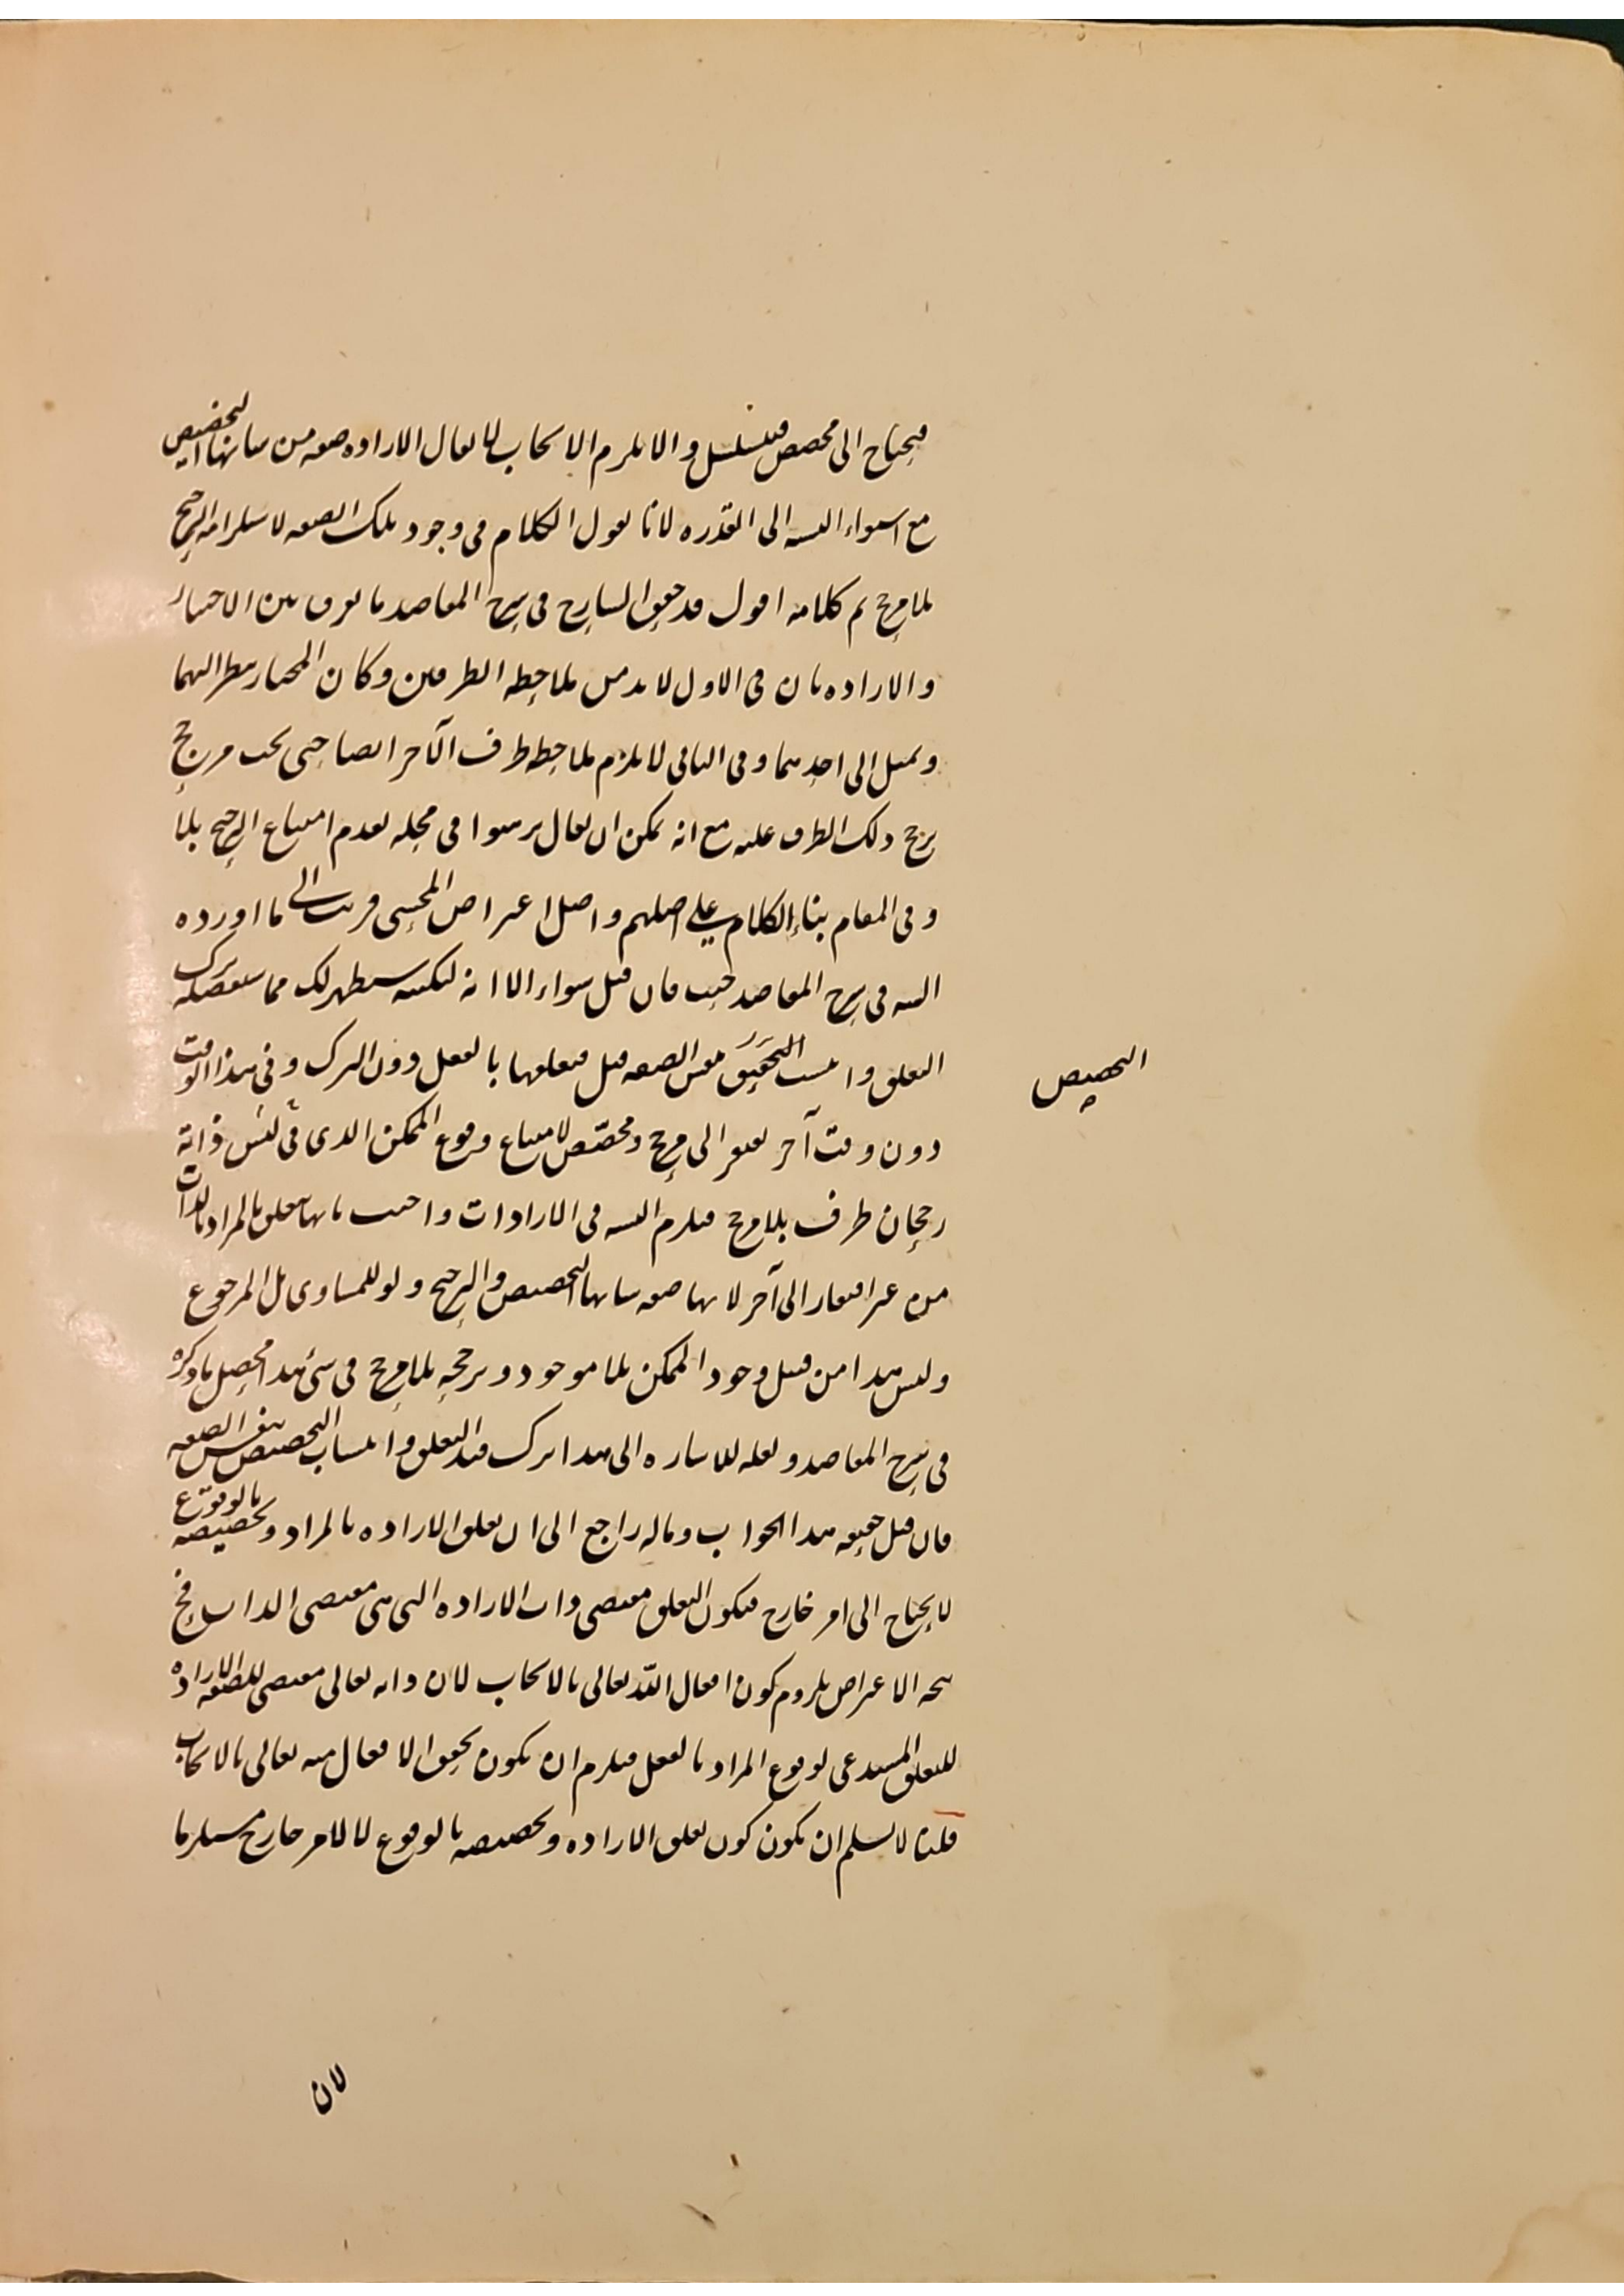 فيحتاج الى مخصص فيتسلسل والا يلزم الايجاب لا يقال الارادة صفة من شانها التخصيص
مع استواء النسبة الى القدرة لانا نقول الكلام في وجود تلك الصفة لاستلزامه الترجيح
بلا مرجح تم كلامه اقول قد حقق الشارح في شرح المقاصد ما يفرق بين الاختيار
والارادة بان في الاول لا بد من ملاحظة الطرفين وكان المختار ينظر اليهما
ويميل الى احدهما وفي الثاني لا يلزم ملاحظة طرف الآخر ايضا حتى يجب مرجح
يرجح ذلك الطرف عليه مع انه يمكن ان يقال برمتوا في محله بعدم امتناع الترجيح بلا
وفي المقام بناء الكلام على اصلهم واصل اعتراض المحشي قريب الى ما اورده
السيد في شرح المقاصد حيث قال قيل سواء الا انه لنكتة ستظهر لك مما سنفصله ترك
التعلق وانتسب التحقيق بنفس الصفة قيل فتعلقها بالفعل دون الترك وفي هذا الوقت
التخصيص
دون وقت آخر يفتقر الى مرجح ومخصص لامتناع وقوع الممكن الذي في نفس ذاته
رجحان طرف بلا مرجح فيلزم التسلسل في الارادات واجيب بانها تتعلق بالمراد لذاتها
من غير افتقار الى آخر لانها صفة شانها التخصيص والترجيح ولو للمساوي بل المرجوح
وليس هذا من قبيل وجود الممكن بلا موجود وترجحه بلا مرجح في شئ هذا محصل ما ذكره
في شرح المقاصد ولعله للاشارة الى هذا ترك قيد التعلق وانتساب التخصيص بنفس الصفة
فان قيل حقيقة هذا الجواب وماله راجع الى ان تعلق الارادة بالمراد وتخصيصه بالوقوع
لا يحتاج الى امر خارج فيكون التعلق مقتضى ذات الارادة التي هي مقتضى الذات فح
يتجه الاعتراض بلزوم كون افعال الله تعالى بالايجاب لان ذاته تعالى مقتضى لصفة الارادة
للتعلق المستدعي لوقوع المراد بالفعل فيلزم ان يكون تحقق الافعال منه تعالى بالايجاب
قلنا لا نسلم ان يكون كون تعلق الارادة وتخصيصه بالوقوع لا لامر خارج مستلزما
لان